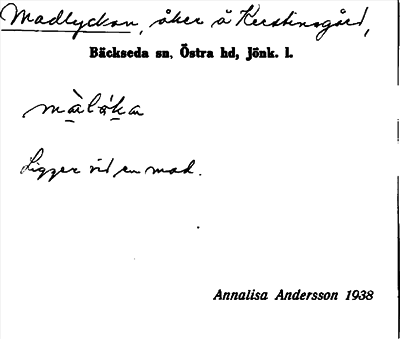 Madlyckan, åker å Kerstinsgård,
Bäckseda sn, Östra hd, Jönk. l.
Ligger vid en mad.
Annalisa Andersson 1938